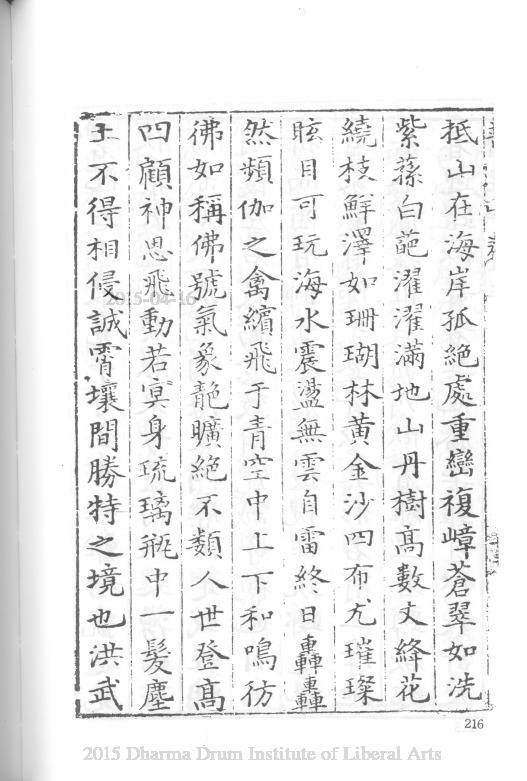 抵山在海岸孤絶處重巒複嶂蒼翠如洗
紫蘂白葩濯濯滿地山丹樹高數丈絳花
繞枝鮮澤如珊瑚林黄金沙四布尤璀璨
眩目可玩海水震盪無雲自雷終日轟轟
然頻伽之禽繽飛于青空中上下和鳴彷
彿如稱佛號氣象靘曠絶不類人世登髙
四顧神思飛動若寘身琉璃瓶中一髮塵
土不得相侵誠霄壤間勝特之境也洪武
216
2015-04-16
2015 Dharma Drum Institute of Liberal Arts